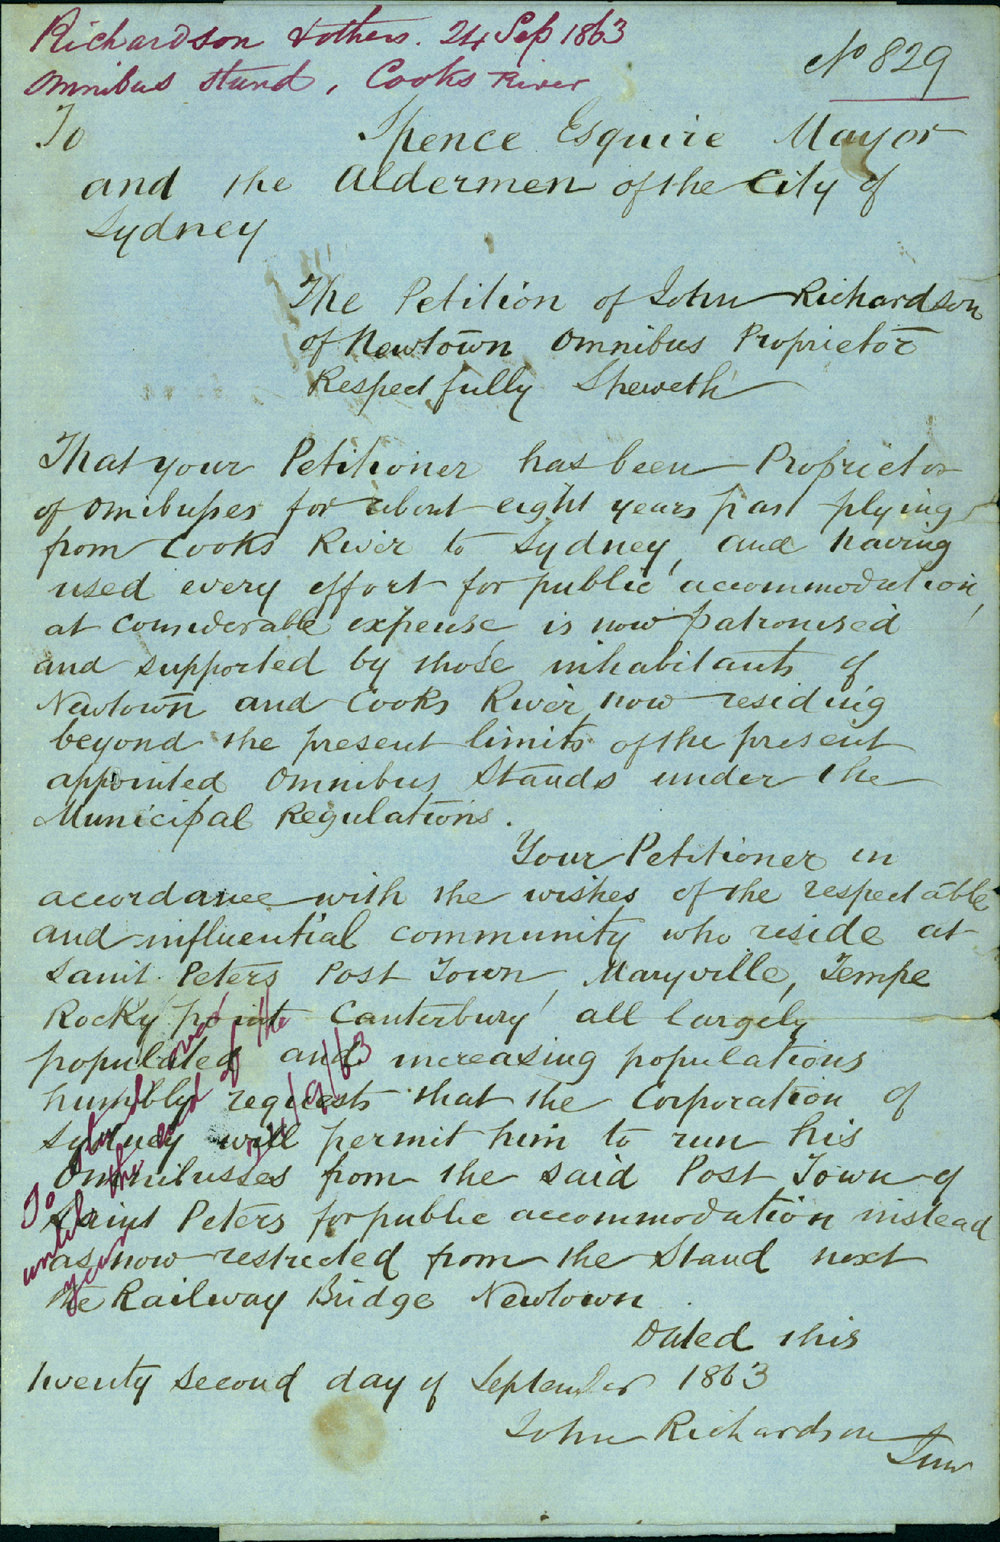 Richardson & others. 24 Sep 1863
Omnibus Stand, Cooks River
No 829
To Spence Esquire Mayor
and the Aldermen of the City of
Sydney
The Petition of John Richardson
of Newtown Omnibus Proprietor
Respectfully Sheweth
That your Petitioner has been Proprietor
of Omibusses for about eight years past plying
from Cooks River to Sydney, and having
used every effort for public accommodation,
at considerable expense is now patronised
and supported by those inhabitants of
Newtown and Cooks River now residing
beyond the present limits of the present
appointed Omnibus Stands under the
Municipal Regulations.
Your Petitioner in
accordance with the wishes of the respectable
and influential community who reside at
Saint Peters Post Town, Maryville, Tempe
Rocky point Canterbury all largely
populated and increasing populations
humbly requests that the Corporation of
Sydney will permit him to run his
Omnibusses from the said Post Town of
Saint Peters for public accommodation instead
as now restricted from the Stand next
the Railway Bridge Newtown
Dated this
twenty second day of September 1863
John Richardson Junr
To stand over
until the end of the
year